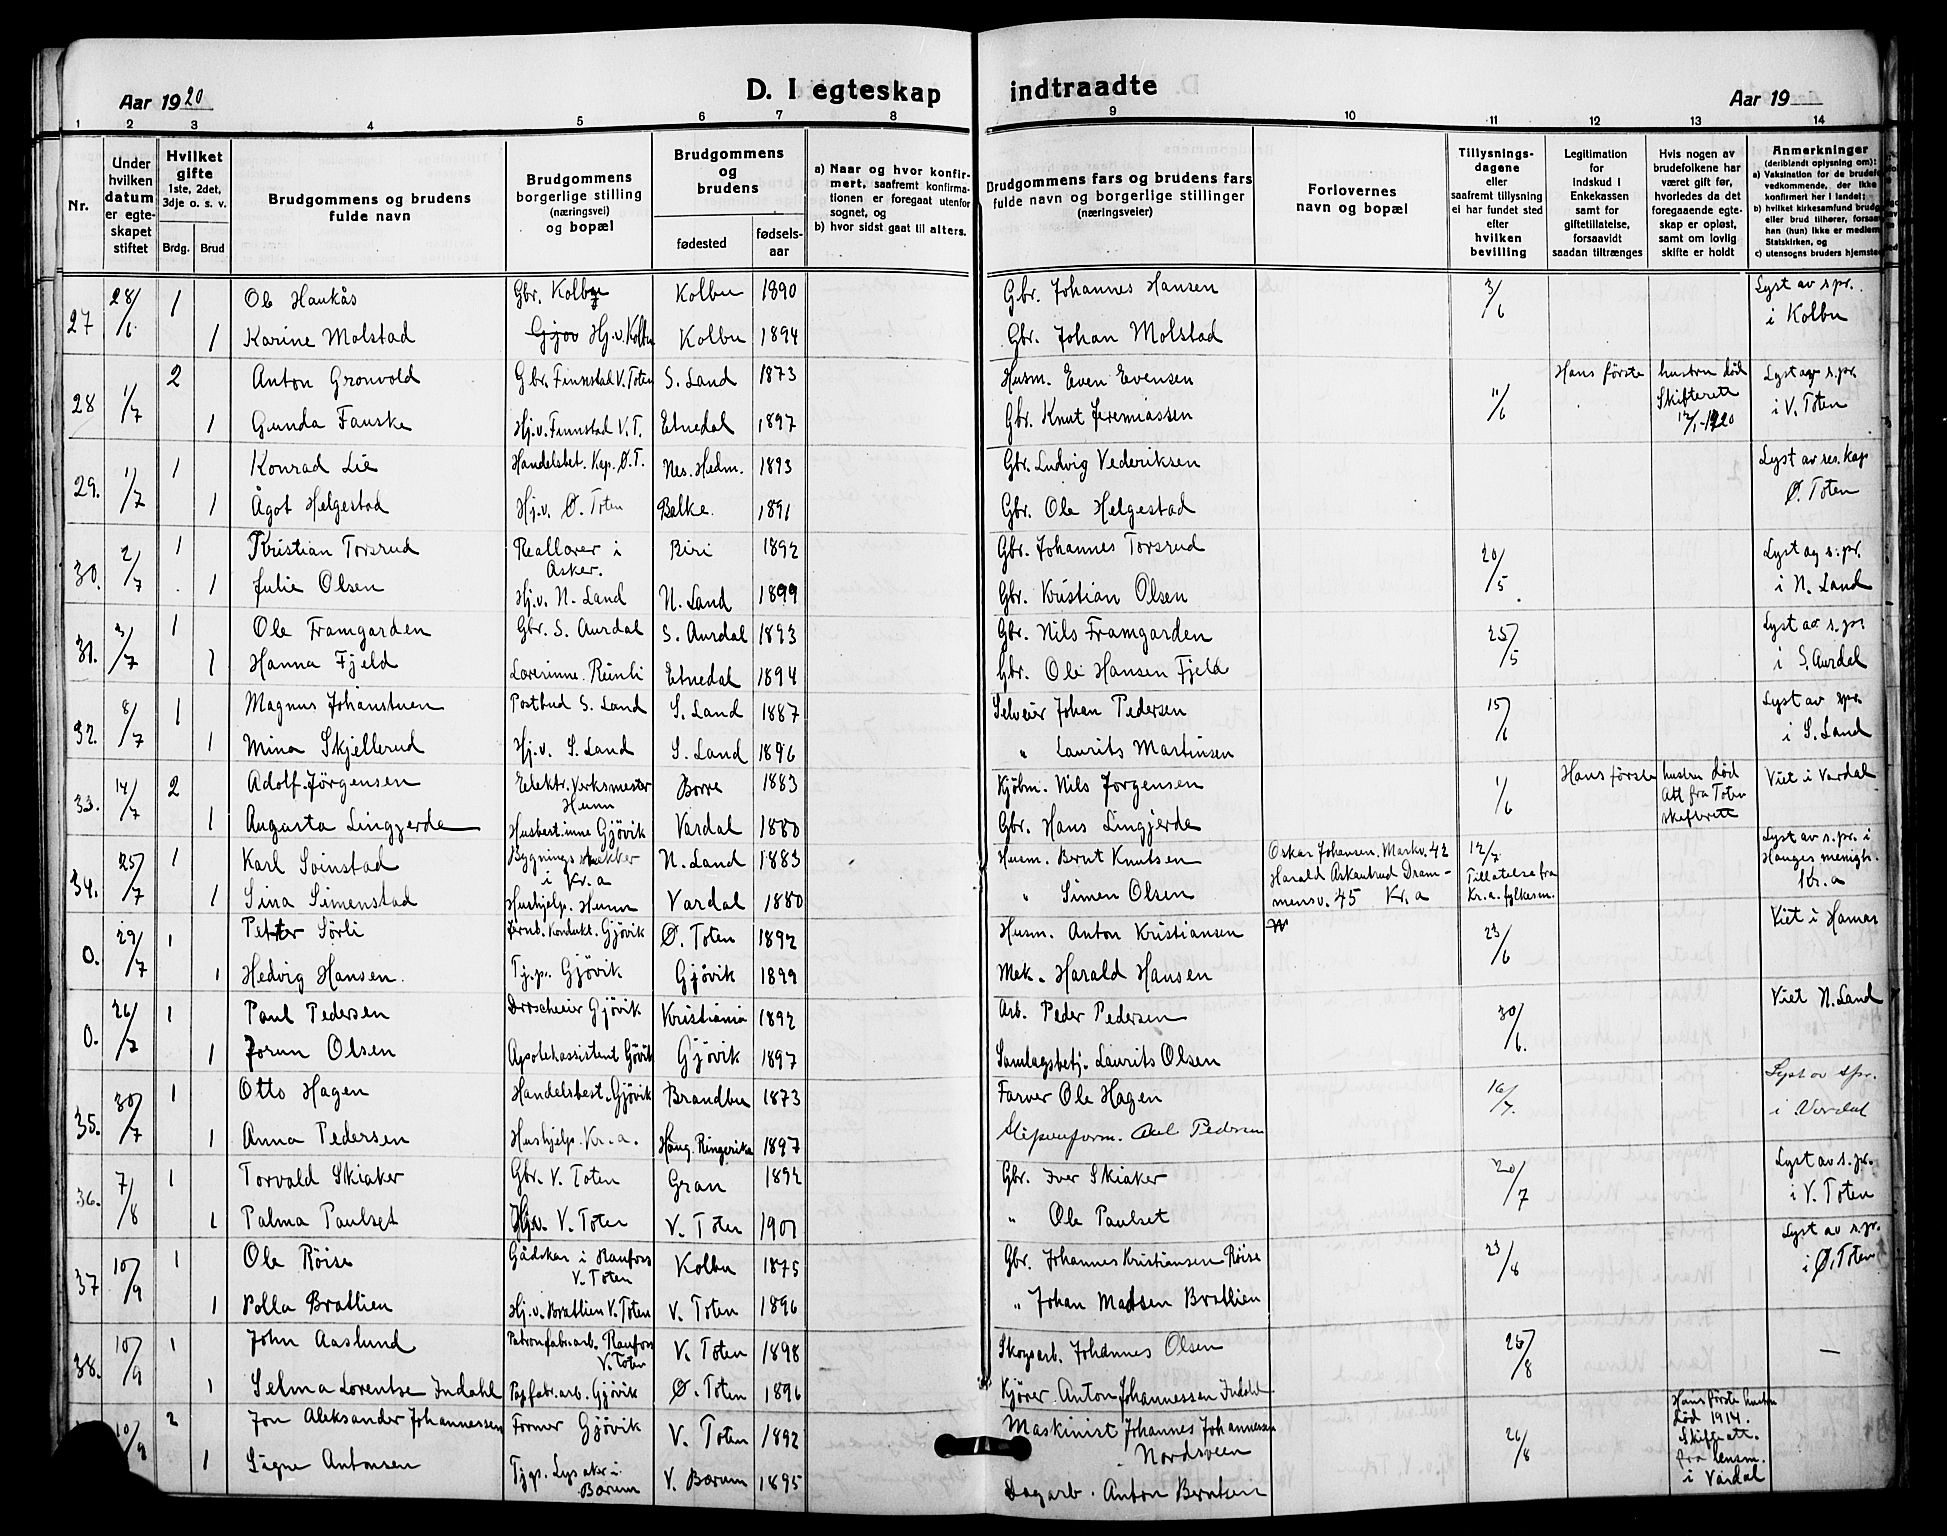 Aar 1920
D. I egteskap indtraadte
Aar 19
1 2 3 4 5 6 7 8 9 10 11 12 13 14
Nr.
Under hvilken datum er egte-skapet stiftet
Hvilket gifte
1ste, 2det, 3dje o. s. v.
Brdg. Brud
Brudgommens og brudens fulde navn
Brudgommens borgerlige stilling (næringsvei) og bopæl
Brudgommens og brudens
fødested
fødsels-aar
a) Naar og hvor konfir-mert, saafremt konfirma-tionen er foregaat utenfor sognet, og
b) hvor sidst gaat til alters.
Brudgommens fars og brudens fars fulde navn og borgerlige stillinger (næringsveier)
Forlovernes navn og bopæl
Tillysnings-dagene eller saafremt tillysning ei har fundet sted efter hvilken bevilling
Legitimation for Indskud i Enkekassen samt for giftetillatelse, forsaavidt saadan tiltrænges
Hvis nogen av brudefolkene har været gift før, hvorledes da det foregaaende egte-skap er opløst, samt om lovlig skifte er holdt
Anmerkninger
(deriblandt oplysning om):
a) Vaksination for de brudef
vedkommende, der ikke
konfirmert her i landet;
b) hvilket kirkesamfund brudg
eller brud tilhører, forsaa
han (hun) ikke er medlem
Statskirken, og
c) utensogns bruders hjemsted
27 28/6 1 Ole Haukås Gbr. Kolbu Kolbu 1890 Gbr. Johannes Hansen 3/6 Lyst av s.pr. i Kolbu
1 Karine Molstad Gjøv Hj.v. Kolbu Kolbu 1894 Gbr. Johan Molstad
28 1/7 2 Anton Grønvold Gbr. Finnstad V. Toten S. Land 1873 Husm. Even Evensen 11/6 Hans første hustru død Skifterett 12/1-1920 Lyst av s.pr. i V. Toten
1 Gunda Fauske Hj.v. Finnstad V.T. Etnedal 1897 Gbr. Knut Jeremiassen
29. 1/7 1 Konrad Lie Handelsbet. Kap. Ø.T. Nes. Hedm. 1893 Gbr. Ludvig Vederiksen Lyst av res. kap Ø. Toten
1 Ågot Helgestad Hj.v. Ø. Toten Balke. 1891 Gbr. Ole Helgestad
30. 2/7 1 Kristian Torsrud Reallærer i Asker. Biri 1892 Gbr. Johannes Torsrud 20/5 Lyst av s.pr. i N. Land
1 Julie Olsen Hj.v. N. Land N. Land 1899 Gbr. Kristian Olsen
31. 3/7 1 Ole Framgarden Gbr. S. Aurdal S. Aurdal 1893 Gbr. Nils Framgarden 25/5 Lyst av s.pr i S. Aurdal
1 Hanna Fjeld Lærerinne. Reinli Etnedal 1894 Gbr. Ole Hansen Fjeld
32. 8/7 1 Magnus Johanstuen Postbud S. Land S. Land 1887 Selveier Johan Pedersen 15/6 Lyst av spr i S. Land
1 Mina Skjellerud Hj.v. S. Land S. Land 1896 " Laurits Martinsen
33. 14/7 2 Adolf Jörgensen Elektr. Verksmester Hunn Borre 1883 Kjöbm. Nils Jörgensen 1/6 Hans første hustru død Att fra Toten skifterett Viet i Vardal
1 Augusta Lingjerde Husbest.inne Gjövik Vardal 1880 Gbr. Hans Lingjerde
34. 25/7 1 Karl Soinstad Bygnings snekker i Kr.a N. Land 1883 Husm. Bernt Knutsen Oskar Johansen. Markv. 42 12/7 Lyst av s.pr. i Hauges menigh. Kr.a
1 Sina Simenstad Hushjelp. Hunn Vardal 1880 " Simen Olsen Harald Askautrud Dram-mensv. 45 Kr.a Tillatelse fra Kr.a. fylkesm.
0. 29/7 1 Petter Sörli Jernb. Kondukt. Gjövik Ø. Toten 1892 Husm. Anton Kristiansen 23/6 Viet i Hamar
1 Hedvig Hansen. Tj.p. Gjövik Gjövik 1899 Mek. Harald Hansen
0. 26/7 1 Paul Pedersen Droscheeier Gjövik Kristiania 1892 Arb. Peder Pedersen 30/6. Viet N. Land
1 Jorun Olsen Apotekassistent Gjövik Gjövik 1897 Samlagsbetj. Laurits Olsen
35. 30/7 1 Otto Hagen Handelsbest. Gjövik Brandbu 1873 Farver Ole Hagen 16/7. Lyst av spr. i Vardal
1 Anna Pedersen Hushjelp. Kr.a. Haug. Ringerike 1897 Sliperiform. Axel Pedersen
36. 7/8 1 Torvald Skiaker Gbr. V. Toten Gran 1892 Gbr. Iver Skiaker 20/7 Lyst av s.pr. i V. Toten
1 Palma Paulset Hj.v. V. Toten V. Toten 1901 " Ole Paulset
37 10/9 1 Ole Röise Gådskar i Raufoss V. Toten Kolbu 1875 Gbr. Johannes Kristiansen Röise 23/8 Lyst av s.pr. i Ø. Toten
1 Polla Brattlien Hj.v. Brattlien V. Toten V. Toten 1896 " Johan Madsen Brattlien
38. 10/9 1 John Aaslund Patronfabr.arb. Raufoss V. Toten V. Toten 1898 Skogsarb. Johannes Olsen 26/8 —
1 Selma Lorentse Indahl Papfabr.arb. Gjövik Ø. Toten 1896 Kjörer Anton Johannessen Indahl
10/9 2 Jon Aleksander Johannessen Former Gjövik V. Toten 1892 Maskinist Johannes Johannessen Nordsveen 26/8 Hans første hustru død 1914. Skifteatt. fra lensm. i Vardal
1 Signe Antonsen Tj.p. Lysaker i Bærum V. Bærum 1895 Dagarb. Anton Berntsen